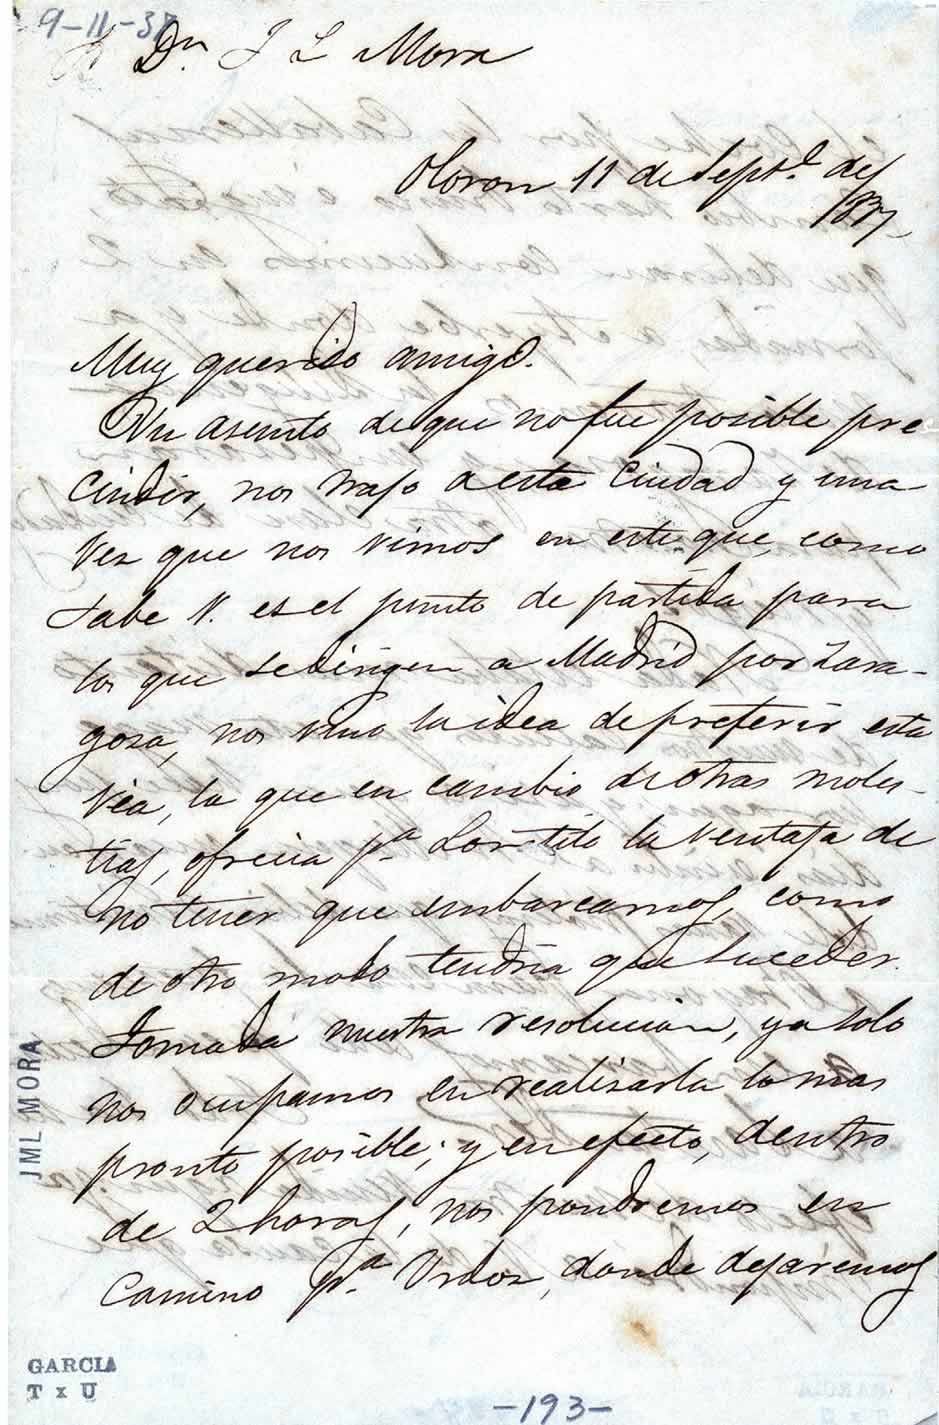 9-11-37
Dn. J L Mora
Oloron 11 de Septe. de
1837
Muy querido amigo.
Un asunto de que no fue posible pre
cindir, nos trajo a esta Ciudad y una
vez que nos vimos en este que, como
sabe V. es el punto de partida para
los que se dirigen a Madrid por Zara-
goza, nos vino la idea de preferir esta
via, la que en cambio de otras moles-
tias, ofrecia pa. la ventaja de
no tener que embarcarnos, como
de otro modo tendria que suceder.
Tomada nuestra resolucion, ya solo
nos ocupamos en realizarla lo mas
pronto posible; y en efecto, dentro
de 2 horas, nos pondremos en
Camino pa. Urdos, donde dejaremos
JML MORA
GARCIA
T x U
-193-